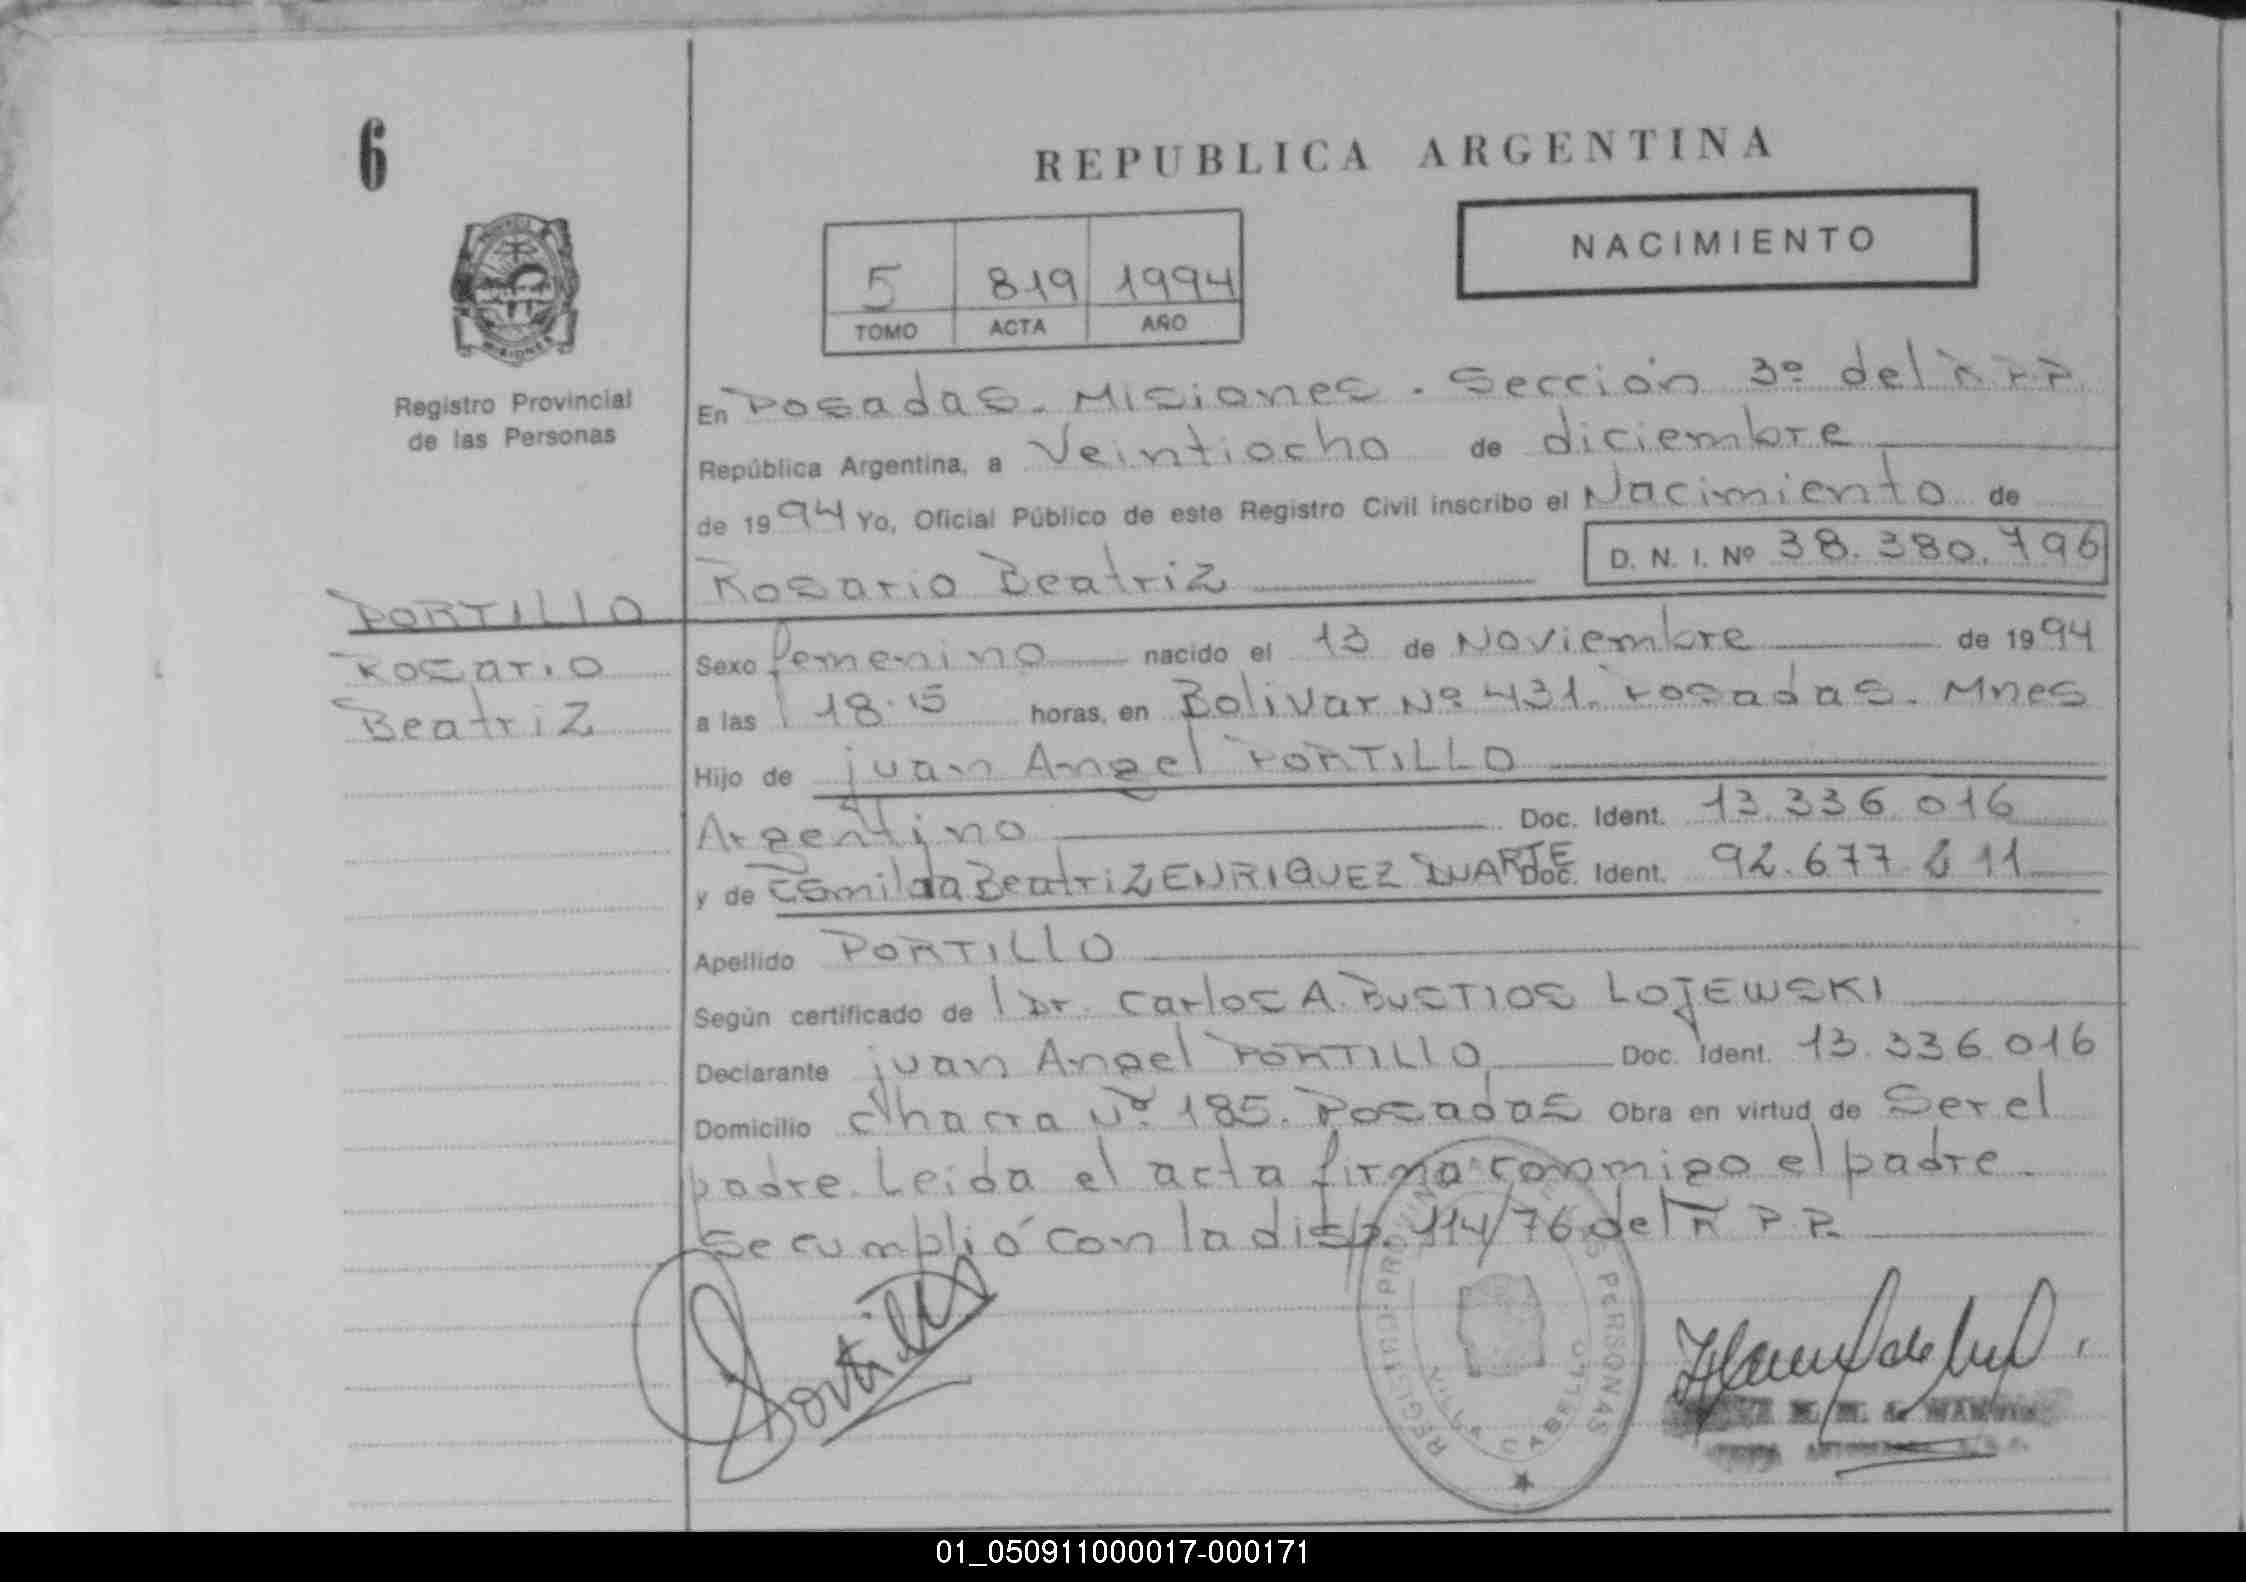 6
REPUBLICA ARGENTINA
NACIMIENTO
5 819 1994
TOMO ACTA AÑO
MISIONES
Registro Provincial
de las Personas
En Posadas. Misiones. Sección 3º del R P P.
República Argentina, a Veintiocho de diciembre
de 1994 Yo, Oficial Público de este Registro Civil inscribo el Nacimiento de
D. N. I. Nº 38.380.796
Rosario Beatriz
PORTILLO
Rosario
Beatriz
Sexo femenino nacido el 13 de Noviembre de 1994
a las 18.15 horas, en Bolivar Nº 431. Posadas. Mnes
Hijo de juan Angel PORTILLO
Argentino Doc. Ident. 13.336.016
y de Beatriz ENRIQUEZ DUARTE Doc. Ident. 92.677.211
Apellido PORTILLO
Según certificado de Dr. Carlos A. BUSTIOS LOJEWSKI
Declarante juan Angel PORTILLO Doc. Ident. 13.336.016
Domicilio Chacra Nº 185. Posadas Obra en virtud de Ser el
padre. Leida el acta firma conmigo el padre.
Se cumplió con la disp. 114/76 del R P P.
Portillo
REGISTRO PROVINCIAL PERSONAS
VILLA CABELLO
01_050911000017-000171